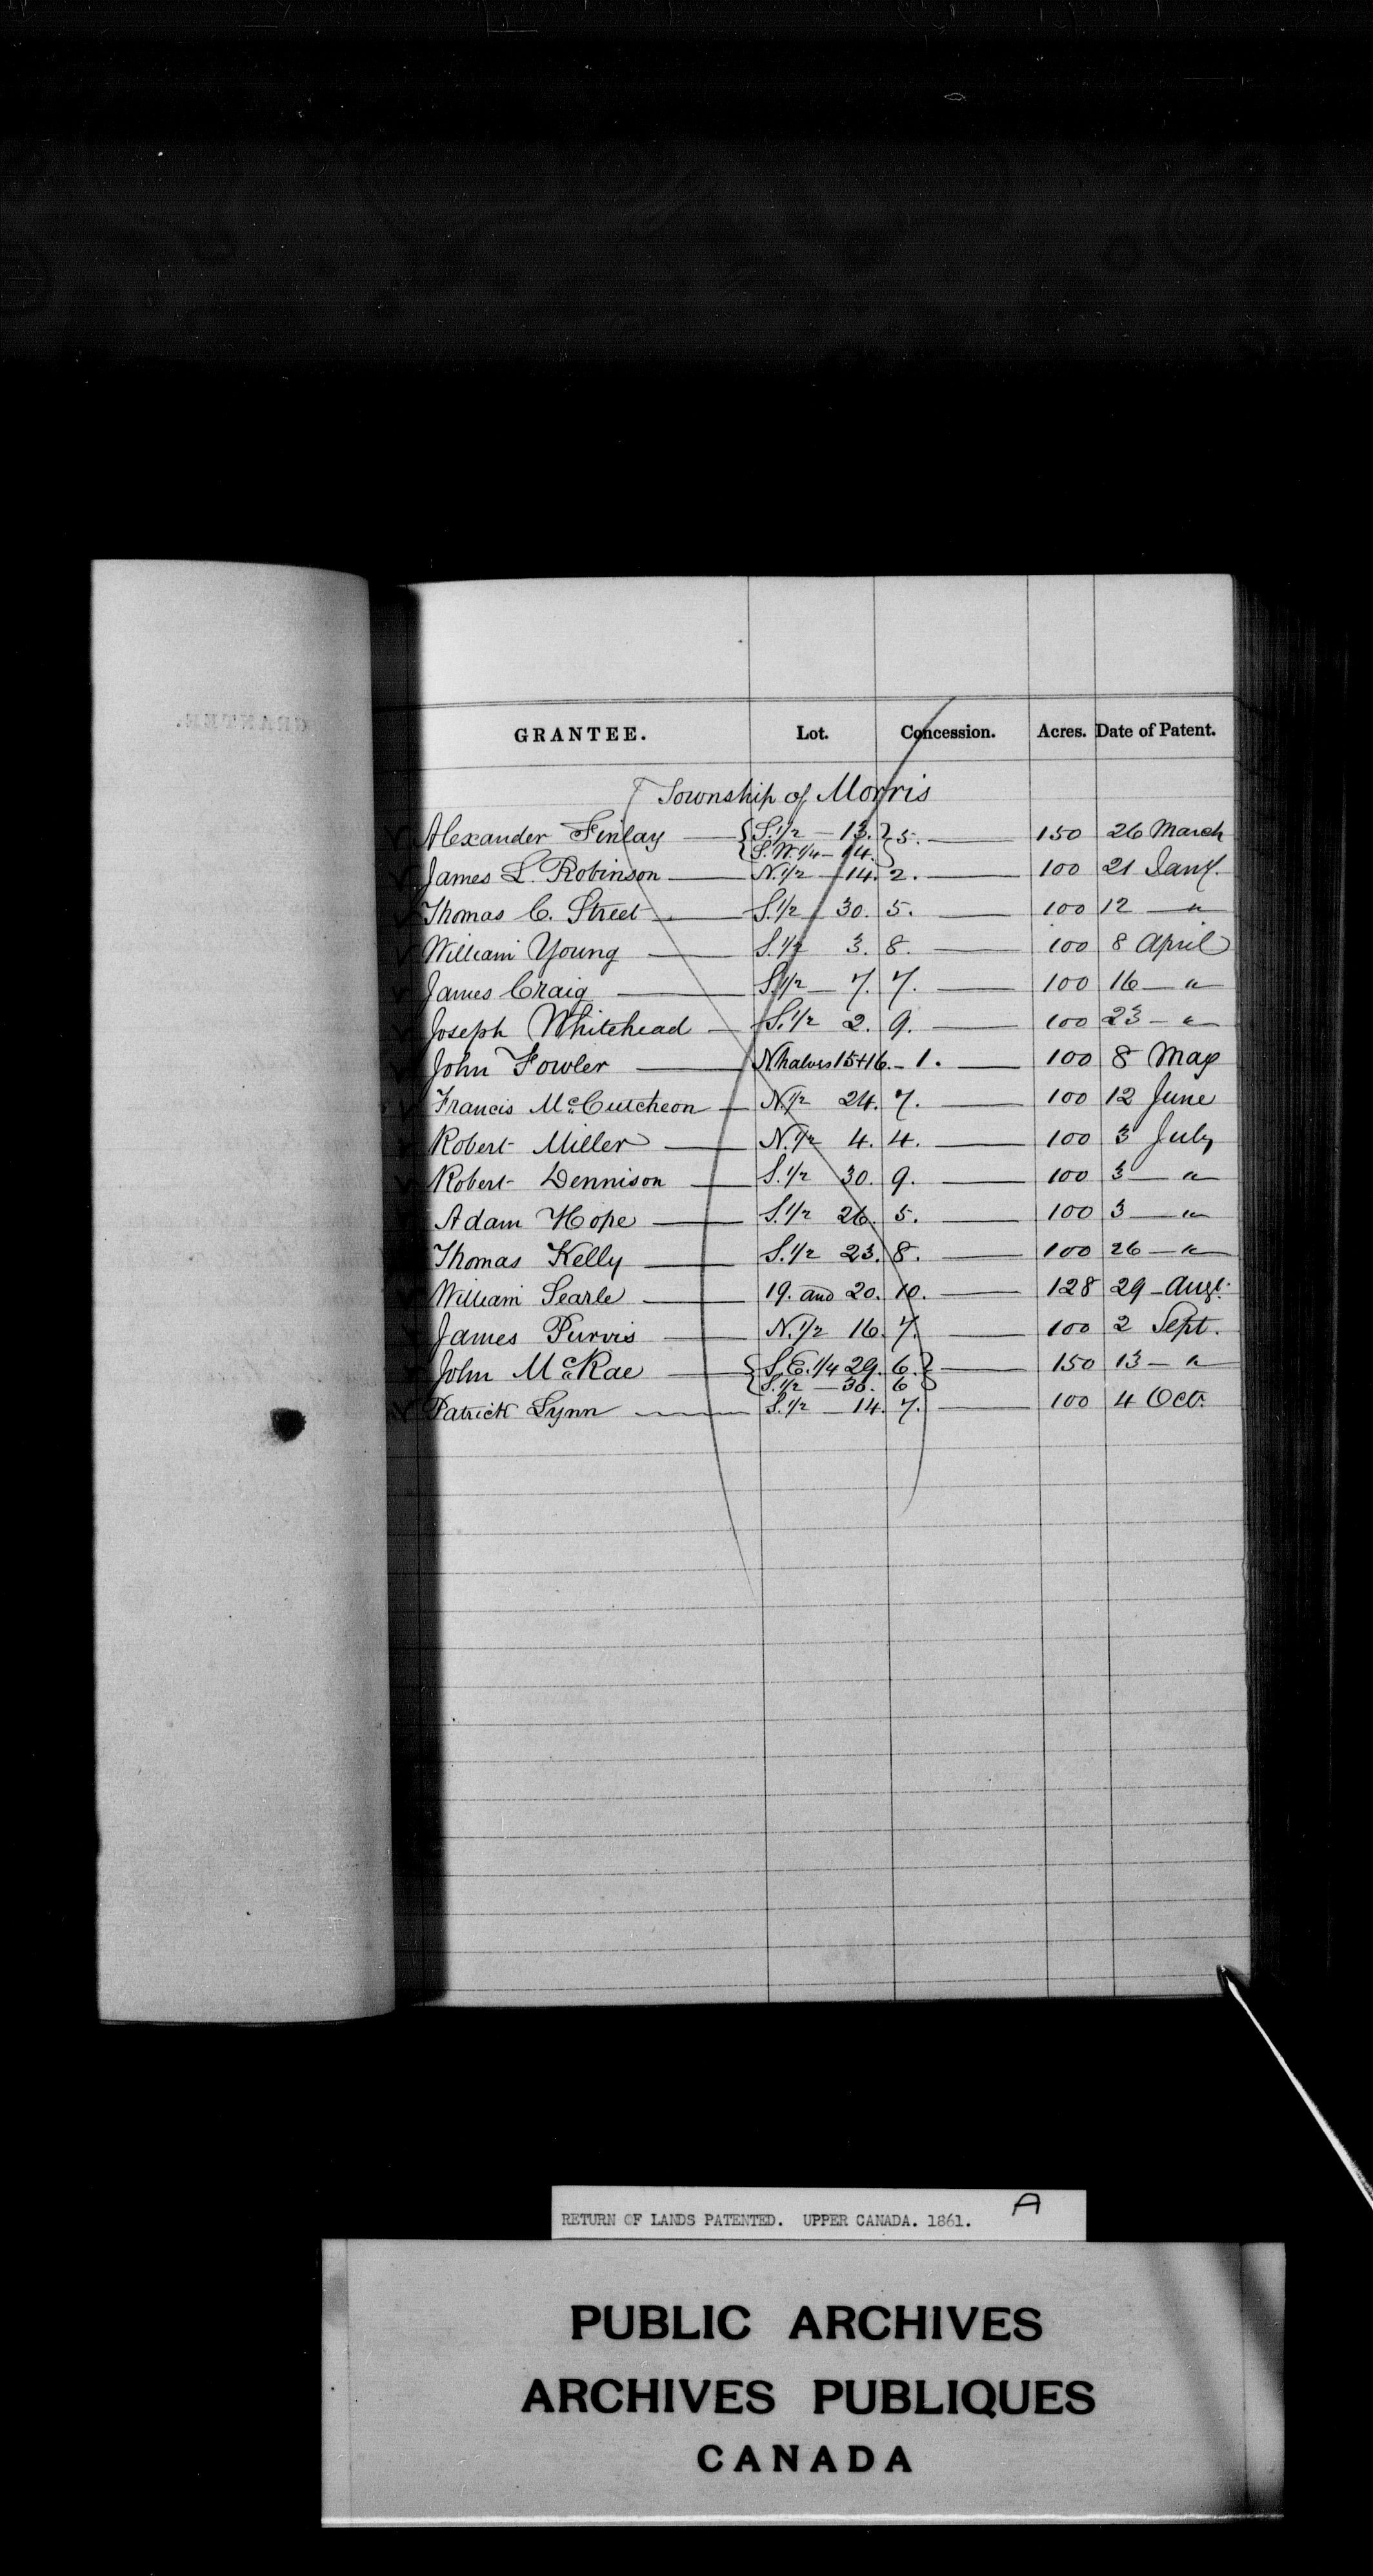 GRANTEE. Lot. Concession. Acres. Date of Patent.
Township of Morris
Alexander Finlay { S. 1/2 — 13. } 5. 150 26 March
{ S. W. 1/4 — 14. }
James L. Robinson N. 1/2 — 14. 2. 100 21 Jany.
Thomas C. Street S. 1/2 30. 5. 100 12 — "
William Young S. 1/2 3. 8. 100 8 April
James Craig S. 1/2 — 7. 7. 100 16 — "
Joseph Whitehead S. 1/2 2. 9. 100 23 — "
John Fowler N halves 15+16. — 1. 100 8 May
Francis McCutcheon N. 1/2 24. 7. 100 12 June
Robert Miller N. 1/2 4. 4. 100 3 July
Robert Dennison S. 1/2 30. 9. 100 3 — "
Adam Hope S. 1/2 26. 5. 100 3 — "
Thomas Kelly S. 1/2 23. 8. 100 26 — "
William Searle 19. and 20. 10. 128 29 — Augt.
James Purvis N. 1/2 16. 7. 100 2 Sept.
John McRae { S. E. 1/4 29. 6. } 150 13 — "
{ S. 1/2 — 30. 6 }
Patrick Lynn S. 1/2 — 14. 7. 100 4 Oct.
RETURN OF LANDS PATENTED. UPPER CANADA. 1861. A
PUBLIC ARCHIVES
ARCHIVES PUBLIQUES
CANADA